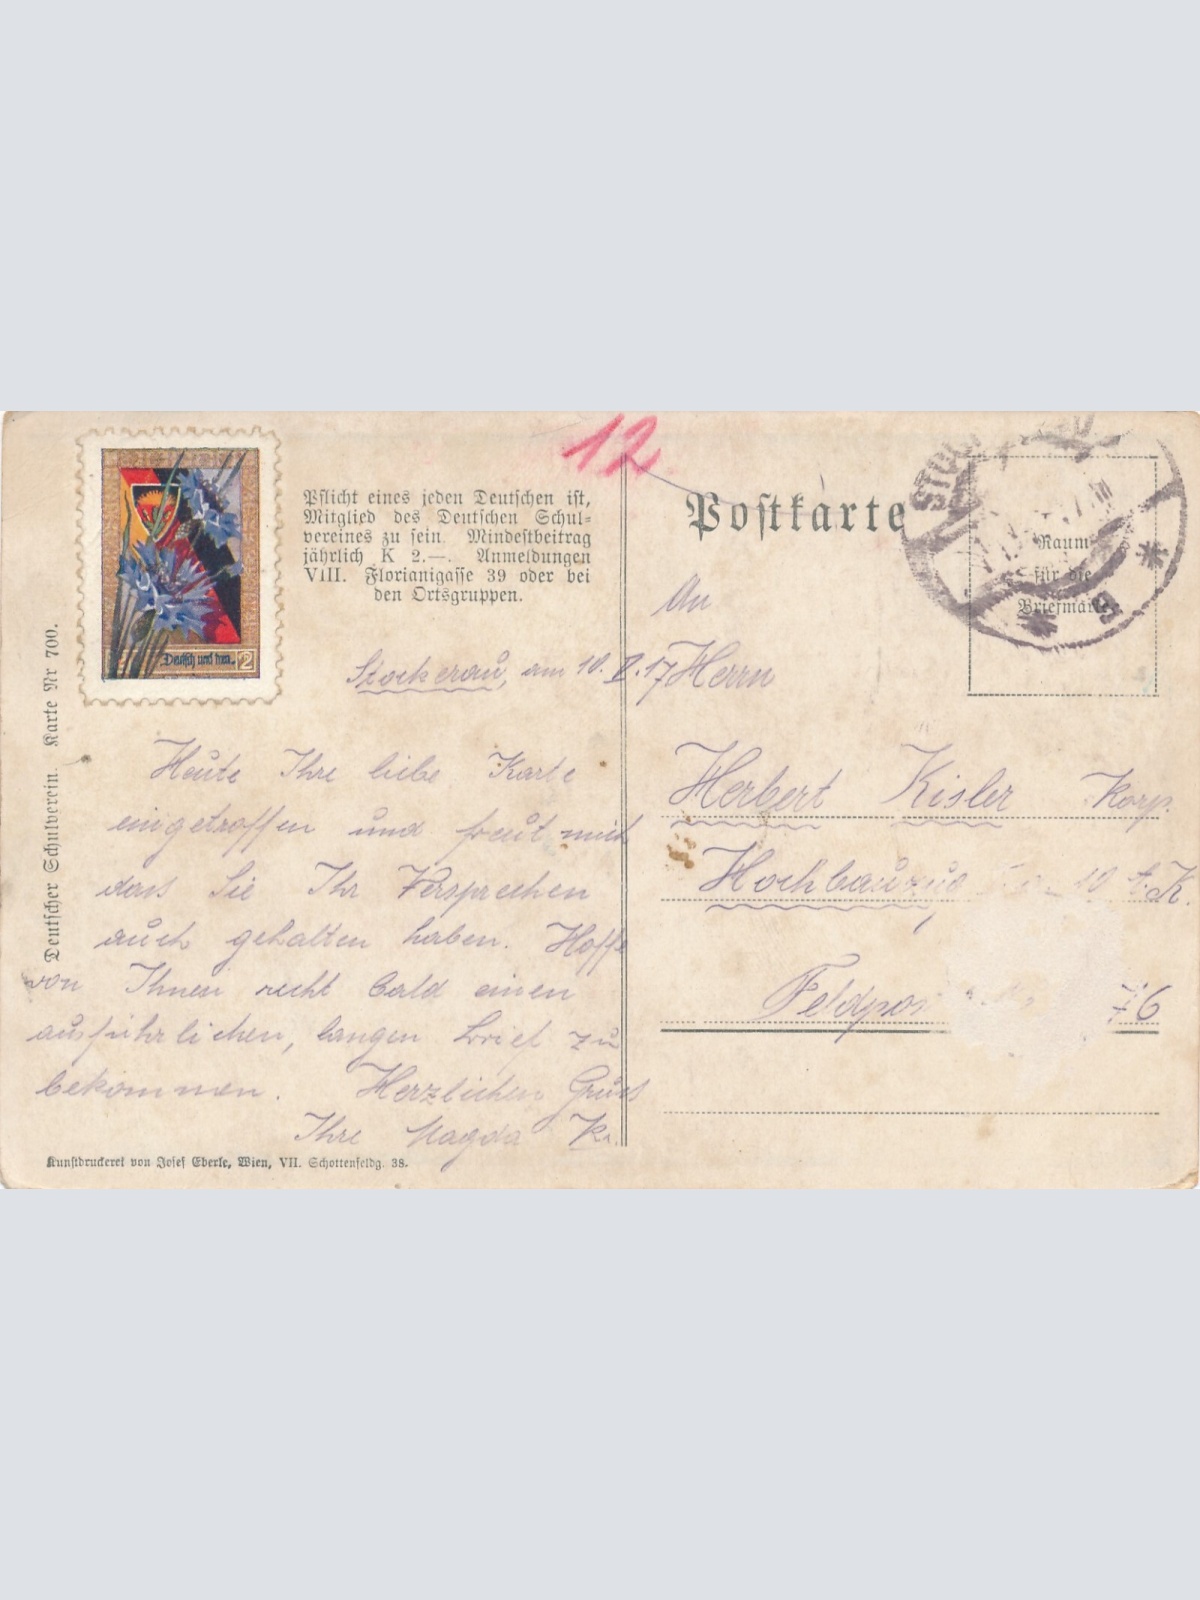 12
Pflicht eines jeden Deutschen ist,
Mitglied des Deutschen Schul-
vereines zu sein. Mindestbeitrag
jährlich K 2.—. Anmeldungen
VIII. Florianigasse 39 oder bei
den Ortsgruppen.
Deutsch und treu. 2
Deutscher Schulverein. Karte Nr 700.
Stockerau, am 10. V. 17
Heute Ihre liebe Karte
eingetroffen und freut mich
dass Sie Ihr Versprechen
auch gehalten haben. Hoffe
von Ihnen recht bald einen
ausführlichen, langen Brief zu
bekommen. Herzlichen Gruss
Ihre Magda Kr.
Kunstdruckerei von Josef Eberle, Wien, VII. Schottenfeldg. 38.
Postkarte
Raum
für die
Briefmarke
An
Herrn
Herbert Kisler Korp.
Hochbauzug 10 t. K.
Feldpos 76